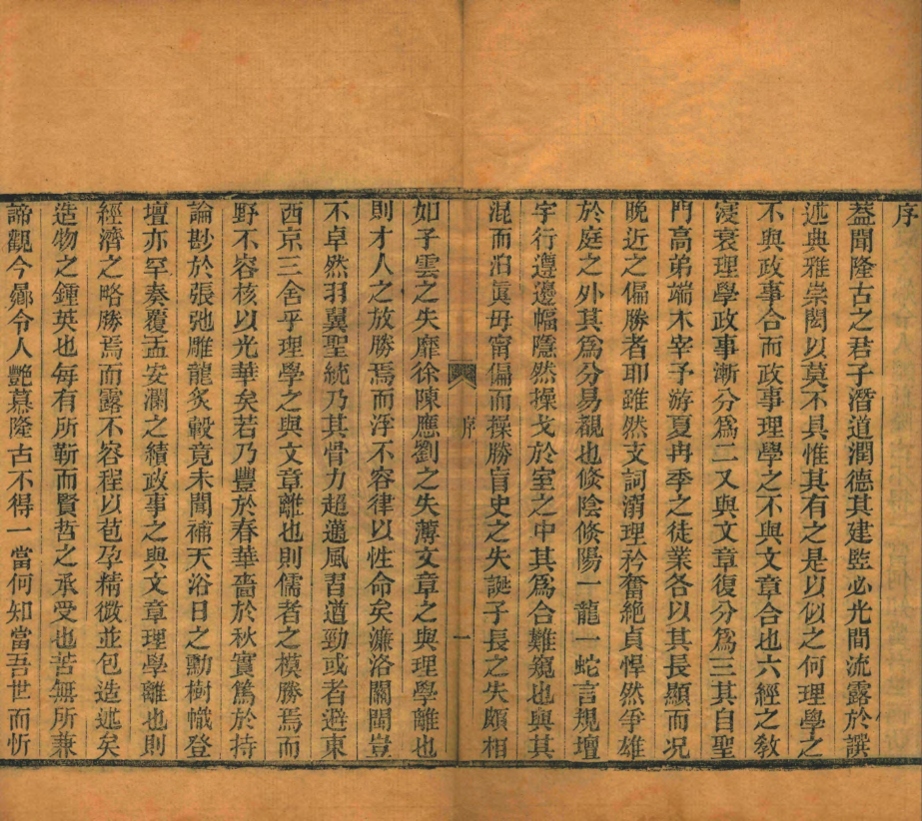 序
蓋聞隆古之君子潛道潤德其建監必光間流露於譔
述典雅崇閎以莫不具惟其有之是以似之何理學之
不與政事合而政事理學之不與文章合也六經之敎
寖衰理學政事漸分爲二又與文章復分爲三其自聖
門高弟端木宰予游夏冉季之徒業各以其長顯而况
晩近之偏勝者耶雖然支詞溺理矜奮絶貞悍然爭雄
於庭之外其爲分易覩也倐陰倐陽一龍一蛇言規壇
宇行遵邊幅隱然操戈於室之中其爲合難窺也與其
混而汨眞毋甯偏而操勝盲史之失誕子長之失頗相
序
一
如子雲之失靡徐陳應劉之失薄文章之與理學離也
則才人之放勝焉而浮不容律以性命矣濂洛關閩豈
不卓然羽翼聖統乃其骨力超邁風胥遒勁或者遊東
西京三舍乎理學之與文章離也則儒者之模勝焉而
野不容核以光華矣若乃豐於春華嗇於秋實篤於持
論尠於張弛雕龍炙轂竟未聞補天浴日之勳樹幟登
壇亦罕奏覆盂安瀾之績政事之與文章理學離也則
經濟之略勝焉而露不容程以苞孕精微並包造述矣
造物之鍾英也每有所靳而賢哲之承受也苦無所兼
諦觀今曏令人艶慕隆古不得一當何知當吾世而忻